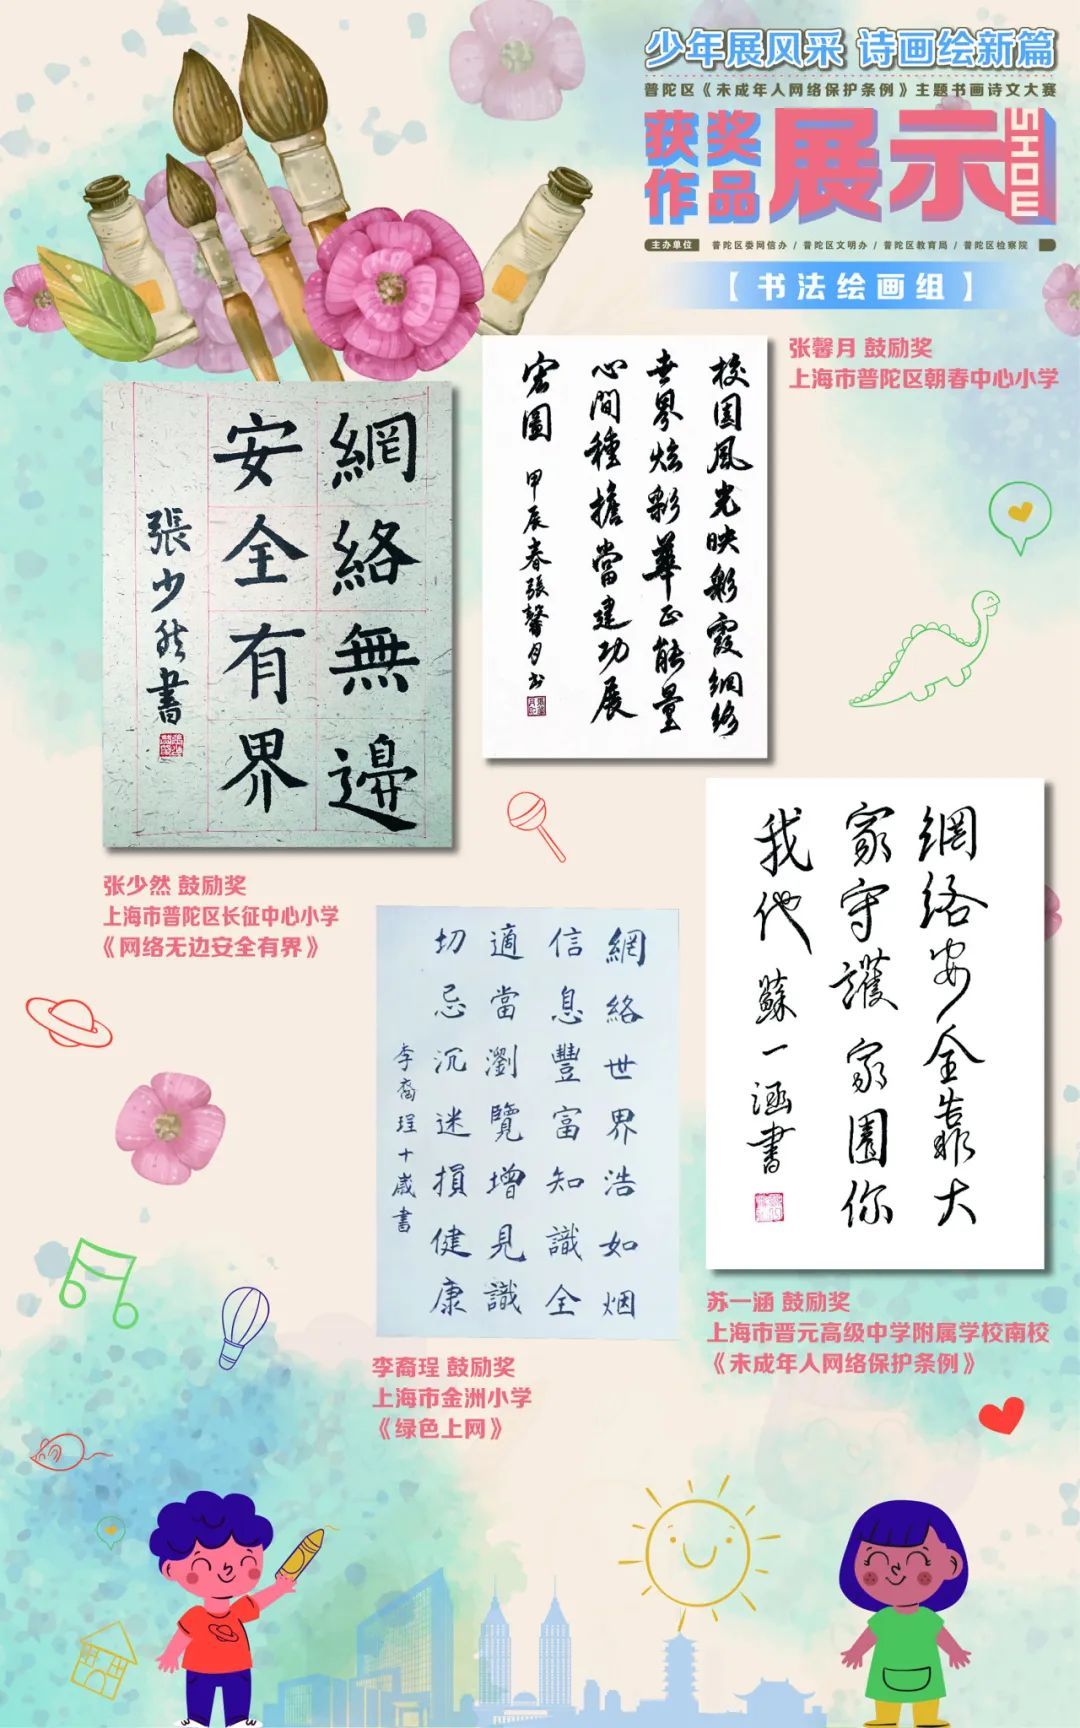 少年展风采 诗画绘新篇
普陀区《未成年人网络保护条例》主题书画诗文大赛
获奖
作品
展示
SHOW
主办单位 普陀区委网信办 / 普陀区文明办 / 普陀区教育局 / 普陀区检察院
【书法绘画组】
张馨月 鼓励奖
上海市普陀区朝春中心小学
校园風光映彩霞網絡
世界炫彩華正能量
心間種擔當建功展
宏圖
甲辰春張馨月书
網絡無邊
安全有界
張少然書
张少然 鼓励奖
上海市普陀区长征中心小学
《网络无边安全有界》
網絡安全靠大
家守護家園你
我他
蘇一涵書
苏一涵 鼓励奖
上海市晋元高级中学附属学校南校
《未成年人网络保护条例》
網絡世界浩如烟
信息豐富知識全
適當瀏覽增見識
切忌沉迷損健康
李裔珵十歲書
李裔珵 鼓励奖
上海市金洲小学
《绿色上网》